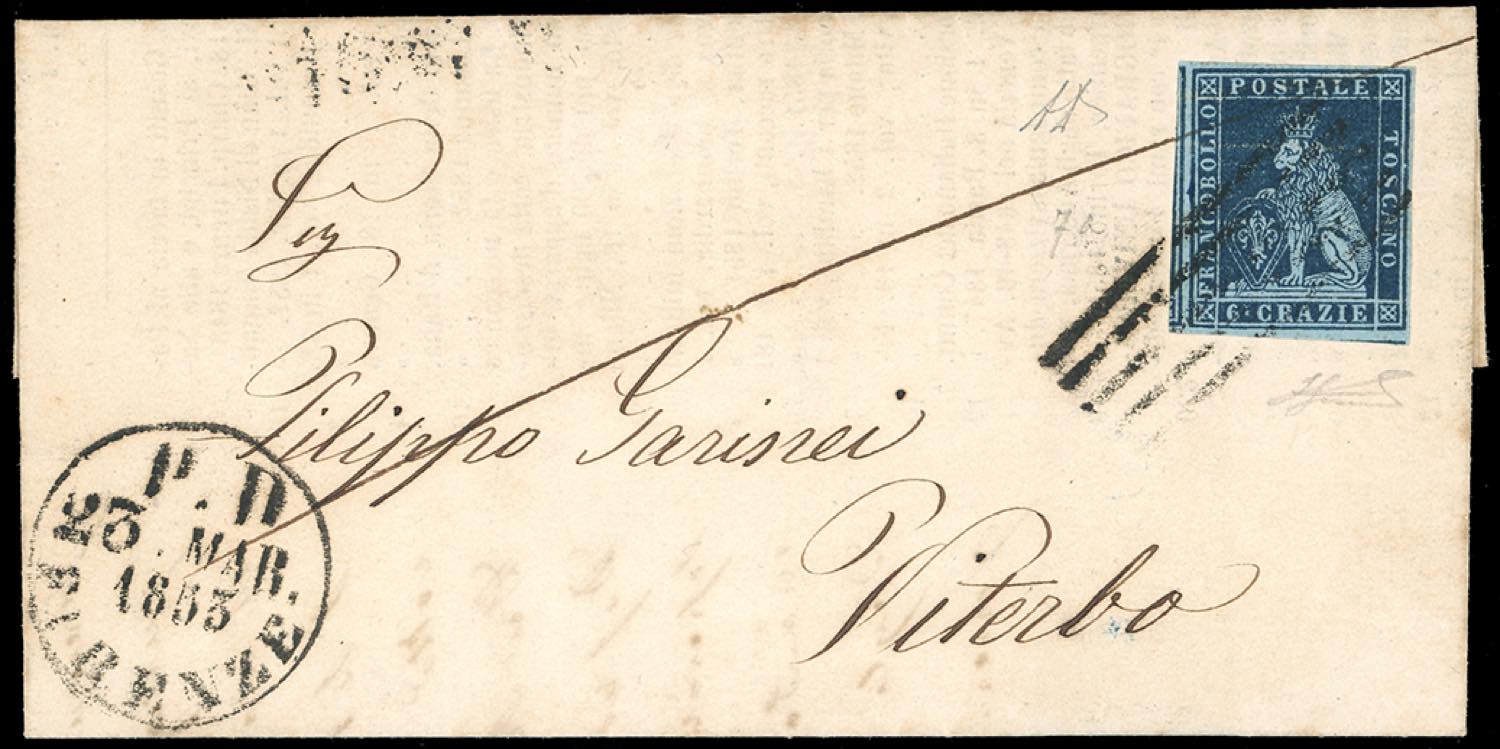 POSTALE
FRANCOBOLLO
TOSCANO
6 CRAZIE
Sig
Filippo Garinei
Viterbo
P. D
23 MAR.
1853
FIRENZE